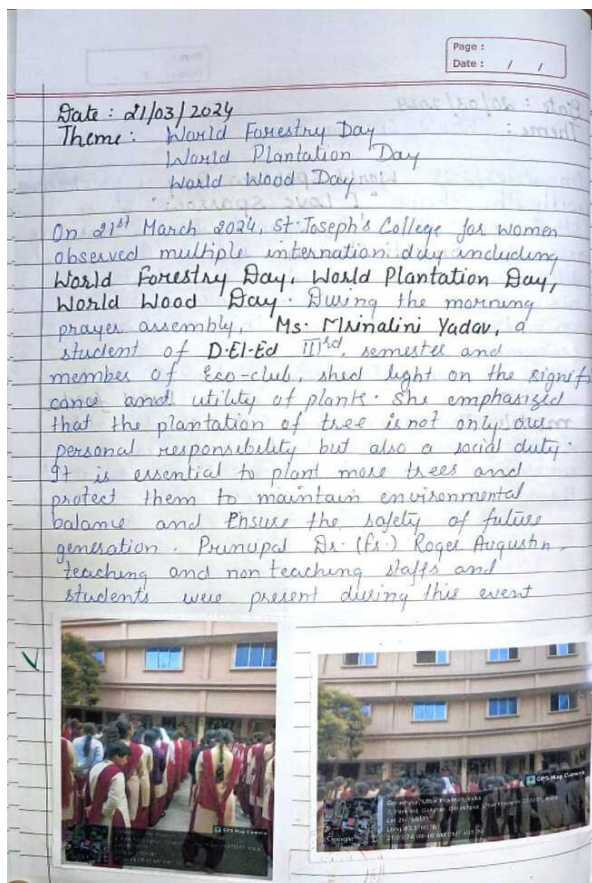 Page :
Date : / /
Date : 21/03/2024
Theme : World Forestry Day
World Plantation Day
World Wood Day
On 21st March 2024, St. Joseph's College for women
observed multiple internation day including
World Forestry Day, World Plantation Day,
World Wood Day. During the morning
prayer assembly, Ms. Mrinalini Yadav, a
student of D-El-Ed IIIrd, semester and
member of Eco-club, shed light on the signifi
cance and utility of plants. She emphasized
that the plantation of tree is not only our
personal responsibility but also a social duty.
It is essential to plant more trees and
protect them to maintain environmental
balance and Ensure the safety of future
generation. Prinupal Dr. (fr.) Roger Augustin,
teaching and non teaching staffs and
students were present during this event
GPS Map Camera
GPS Map Camera
Gorakhpur, Uttar Pradesh, India
Google